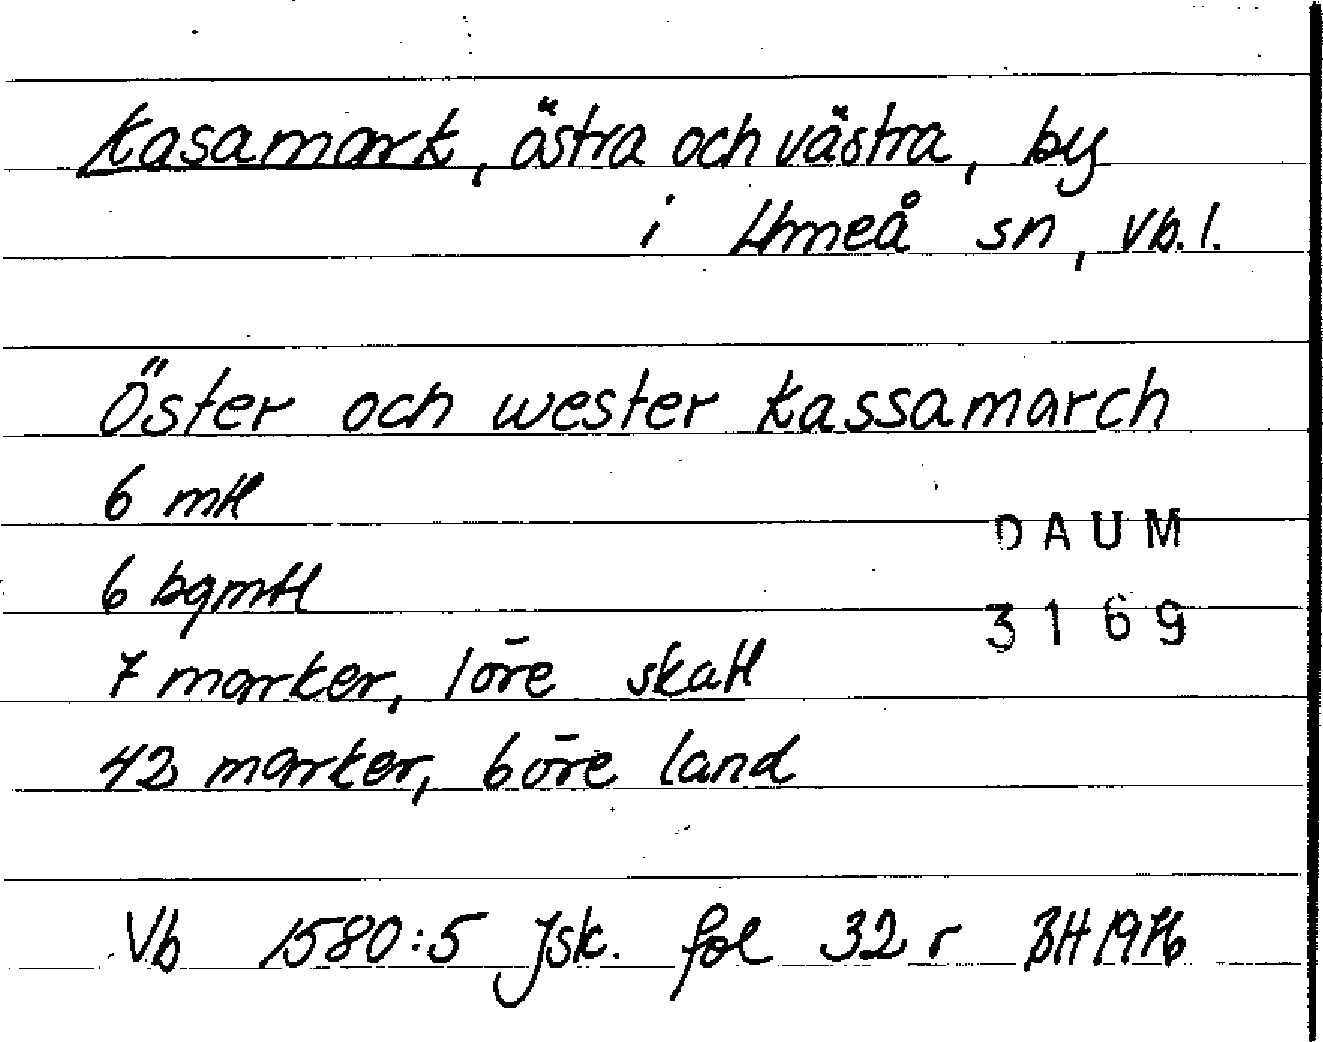 Kasamark, östra och västra, by
i Umeå sn, Vb. l.
Öster och wester Kassamarch
6 mtl
6 bgmtl
DAUM
7 marker, 1 öre skatt
3169
42 marker, 6 öre land
Vb 1580:5 Jsk. fol 32 r BH 1976